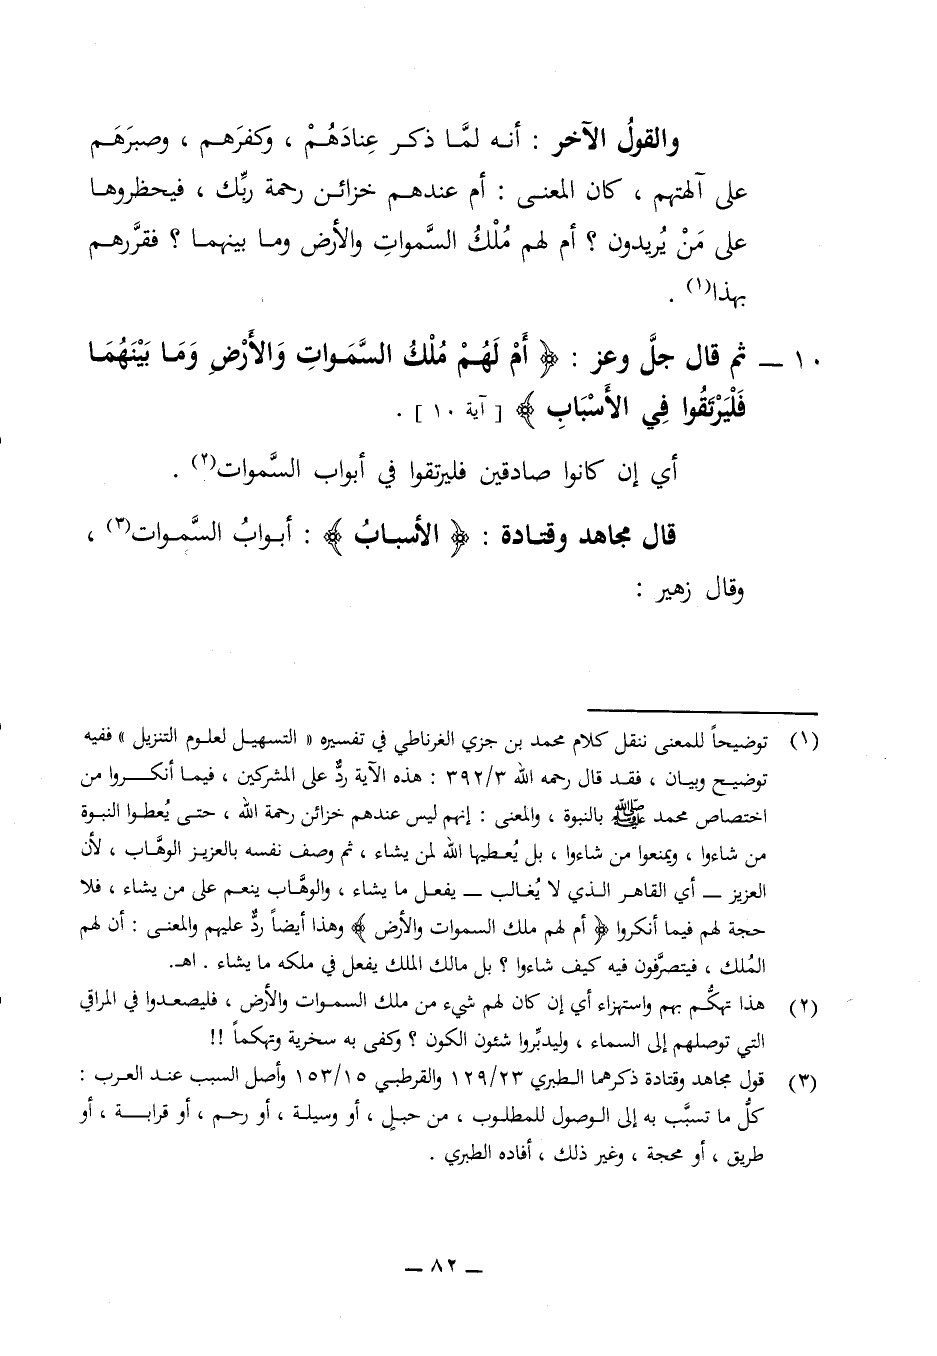 والقولُ الآخر : أنه لمَّا ذكر عِنادَهُمْ ، وكفرَهم ، وصبرَهَم
على آلهتهم ، كان المعنى : أم عندهم خزائن رحمة ربِّك ، فيحظروها
على مَنْ يُريدون ؟ أم لهم مُلْكُ السَّمواتِ والأرض وما بينهما ؟ فقرَّرهم
بهذا(١) .
١٠ ــ ثم قال جلَّ وعز : ﴿ أَمْ لَهُمْ مُلْكُ السَّمَواتِ وَالأَرْضِ وَمَا بَيْنَهُمَا
فَلْيَرْتَقُوا فِي الأَسْبَابِ ﴾ [ آية ١٠ ] .
أي إن كانوا صادقين فليرتقوا في أبواب السَّموات(٢) .
قال مجاهد وقتادة : ﴿ الأسبابُ ﴾ : أبوابُ السَّموات(٣) ،
وقال زهير :
(١) توضيحاً للمعنى ننقل كلام محمد بن جزي الغرناطي في تفسيره « التسهيل لعلوم التنزيل » ففيه
توضيح وبيان ، فقد قال رحمه الله ٣٩٢/٣ : هذه الآية ردٌّ على المشركين ، فيما أنكروا من
اختصاص محمد ﷺ بالنبوة ، والمعنى : إنهم ليس عندهم خزائن رحمة الله ، حتى يُعطوا النبوة
من شاءوا ، ويمنعوا من شاءوا ، بل يُعطيها الله لمن يشاء ، ثم وصف نفسه بالعزيز الوهَّاب ، لأن
العزيز ــ أي القاهر الذي لا يُغالب ــ يفعل ما يشاء ، والوهَّاب ينعم على من يشاء ، فلا
حجة لهم فيما أنكروا ﴿ أم لهم ملك السموات والأرض ﴾ وهذا أيضاً ردٌّ عليهم والمعنى : أن لهم
المُلك ، فيتصرَّفون فيه كيف شاءوا ؟ بل مالك الملك يفعل في ملكه ما يشاء . اهـ.
(٢) هذا تهكُّم بهم واستهزاء أي إن كان لهم شيء من ملك السموات والأرض ، فليصعدوا في المراقي
التي توصلهم إلى السماء ، وليدبِّروا شئون الكون ؟ وكفى به سخرية وتهكماً !!
(٣) قول مجاهد وقتادة ذكرهما الطبري ١٢٩/٢٣ والقرطبي ١٥٣/١٥ وأصل السبب عند العرب :
كلُّ ما تسبَّب به إلى الوصول للمطلوب ، من حبلٍ ، أو وسيلة ، أو رحم ، أو قرابة ، أو
طريق ، أو محجة ، وغير ذلك ، أفاده الطبري .
ــ ٨٢ ــ